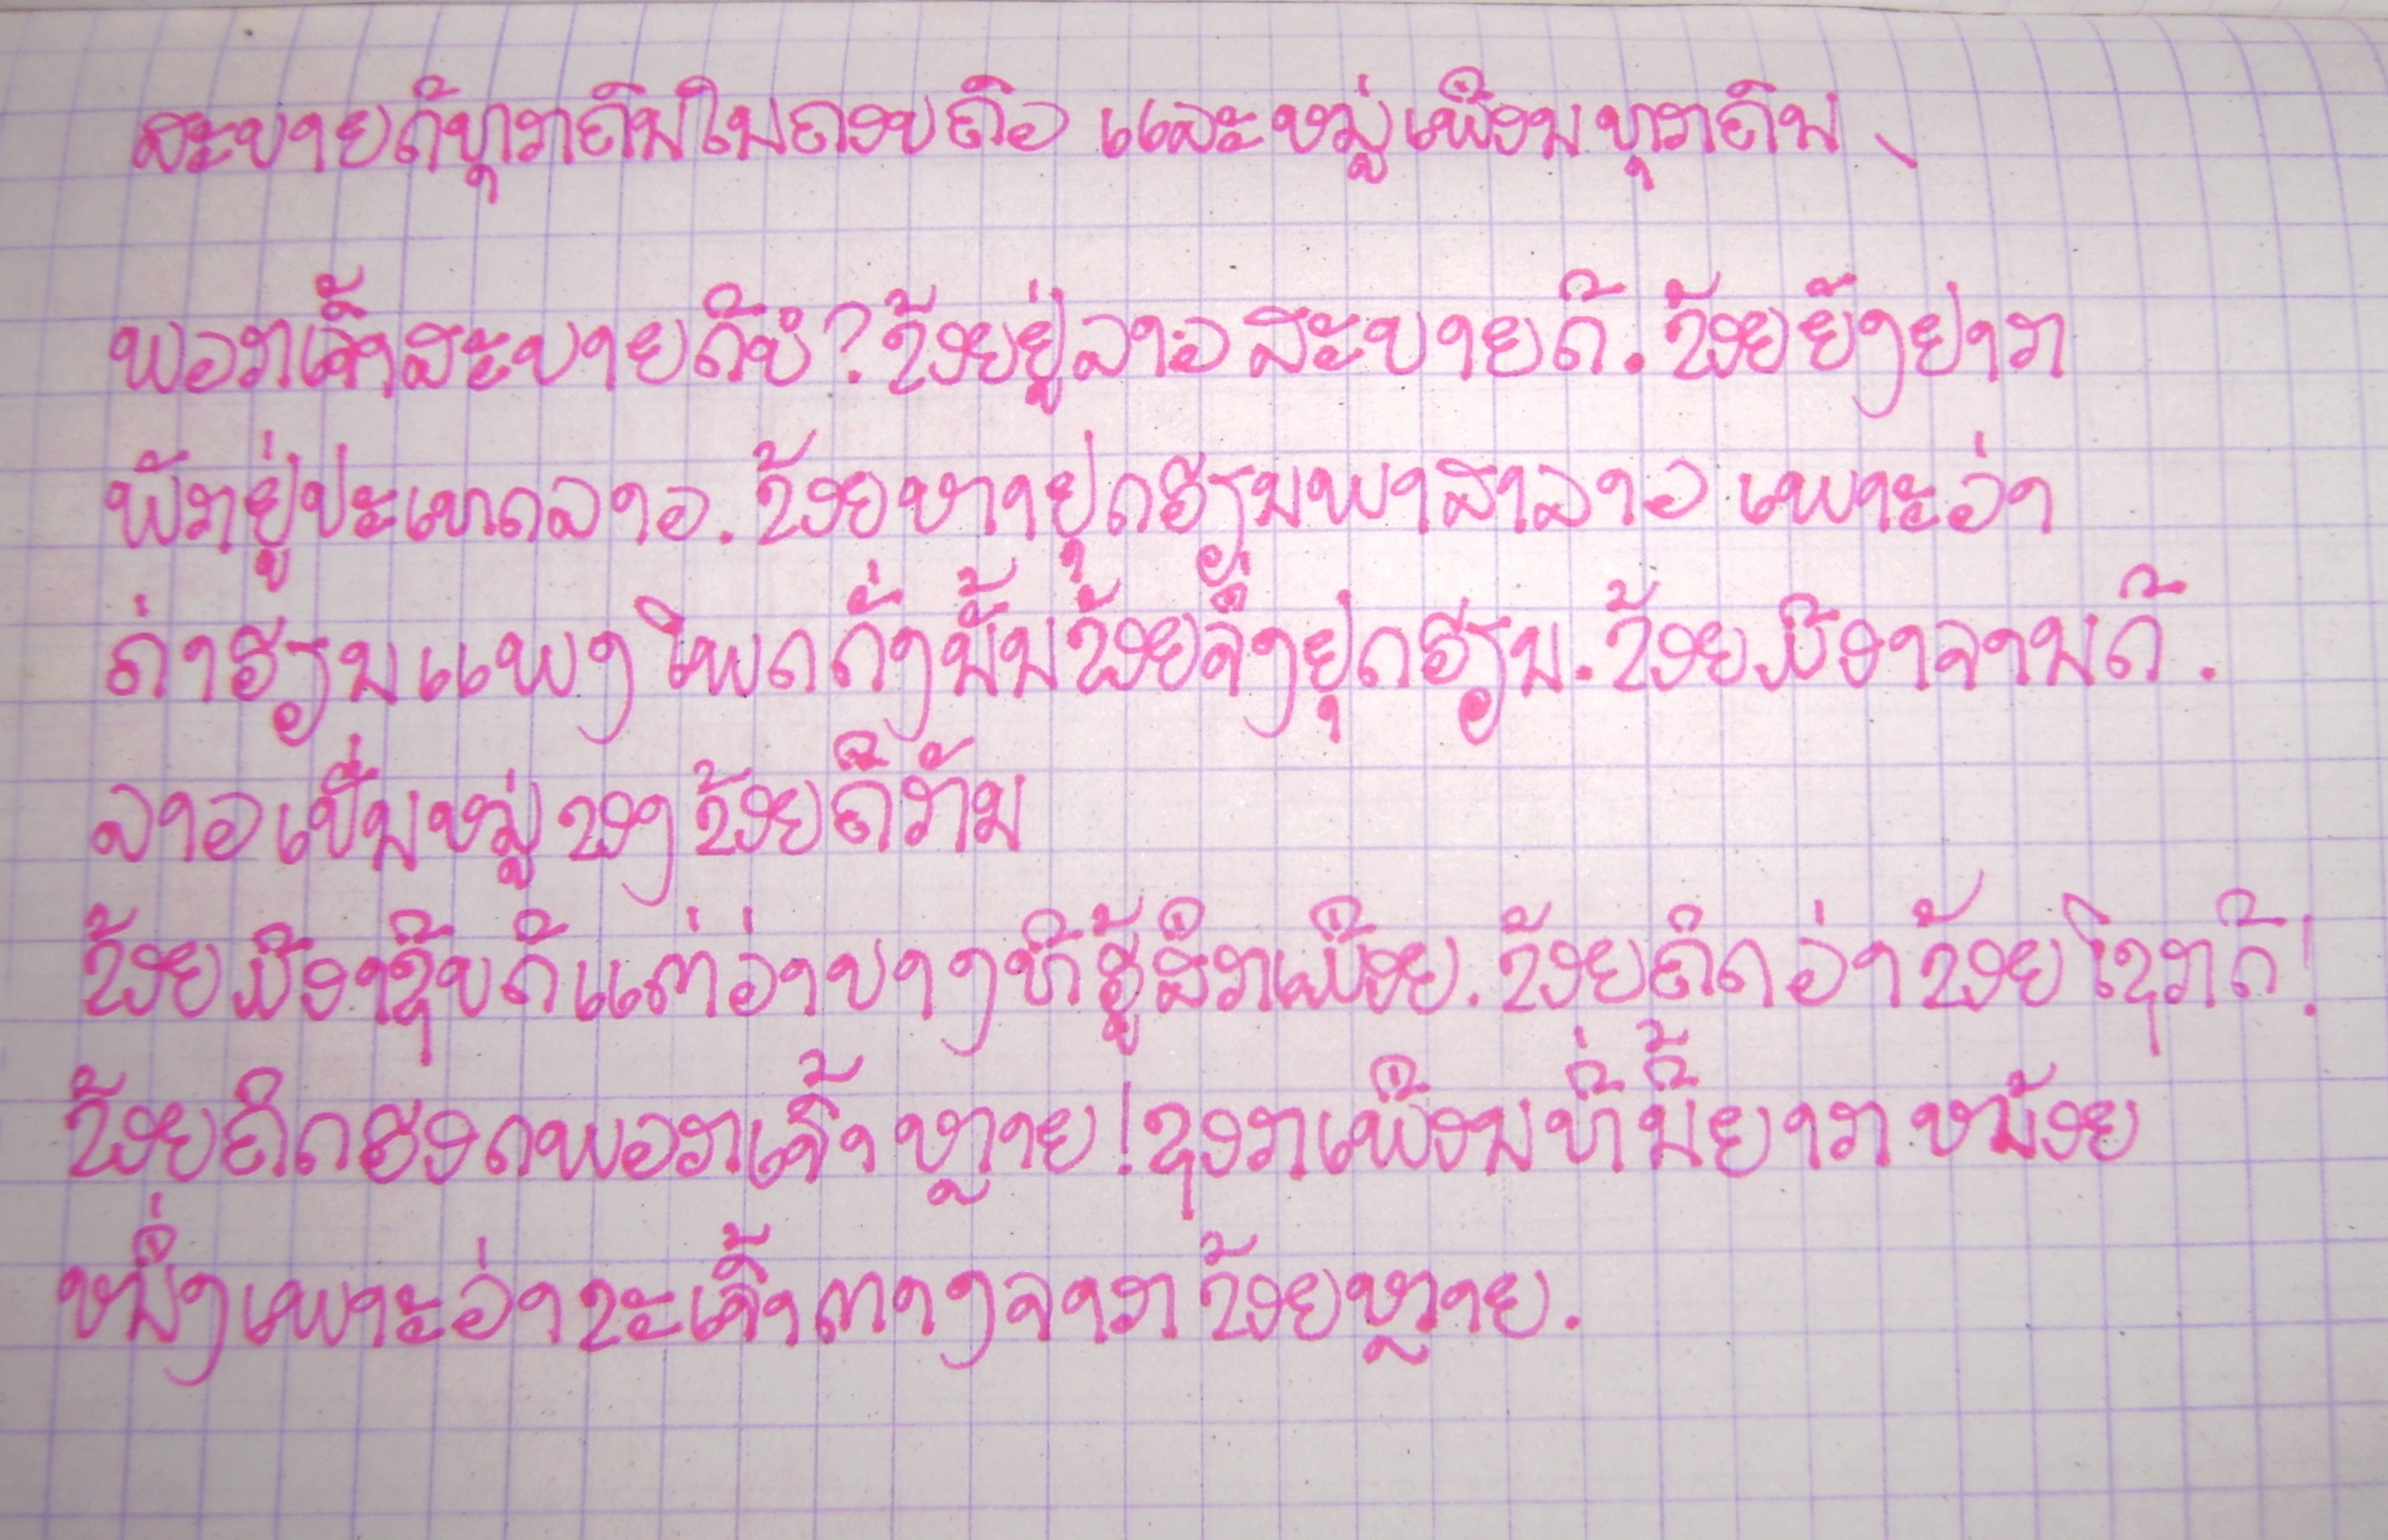 ສະບາຍດີທຸກຄົນໃນຄອບຄົວ ແລະໝູ່ເພື່ອນທຸກຄົນ,
ພວກເຈົ້າສະບາຍດີບໍ? ຂ້ອຍຢູ່ລາວສະບາຍດີ. ຂ້ອຍຍັງຢາກ
ພັກຢູ່ປະເທດລາວ. ຂ້ອຍຫາຢຸດຮຽນພາສາລາວ ເພາະວ່າ
ຄ່າຮຽນແພງໂພດດັ່ງນັ້ນຂ້ອຍຈຶ່ງຢຸດຮຽນ. ຂ້ອຍມີອາຈານດີ.
ລາວເປັ່ນໝູ່ຂອງຂ້ອຍຄືກັນ
ຂ້ອຍມີອາຊີບດີແຕ່ວ່າບາງທີຮູ້ສຶກເມື່ອຍ. ຂ້ອຍຄິດວ່າຂ້ອຍໂຊກດີ!
ຂ້ອຍຄິດຮອດພວກເຈົ້າຫຼາຍ! ຊອກເພື່ອນທີ່ນີ້ຍາກໜ້ອຍ
ໜຶ່ງເພາະວ່າຂະເຈົ້າຕາງຈາກຂ້ອຍຫຼາຍ.